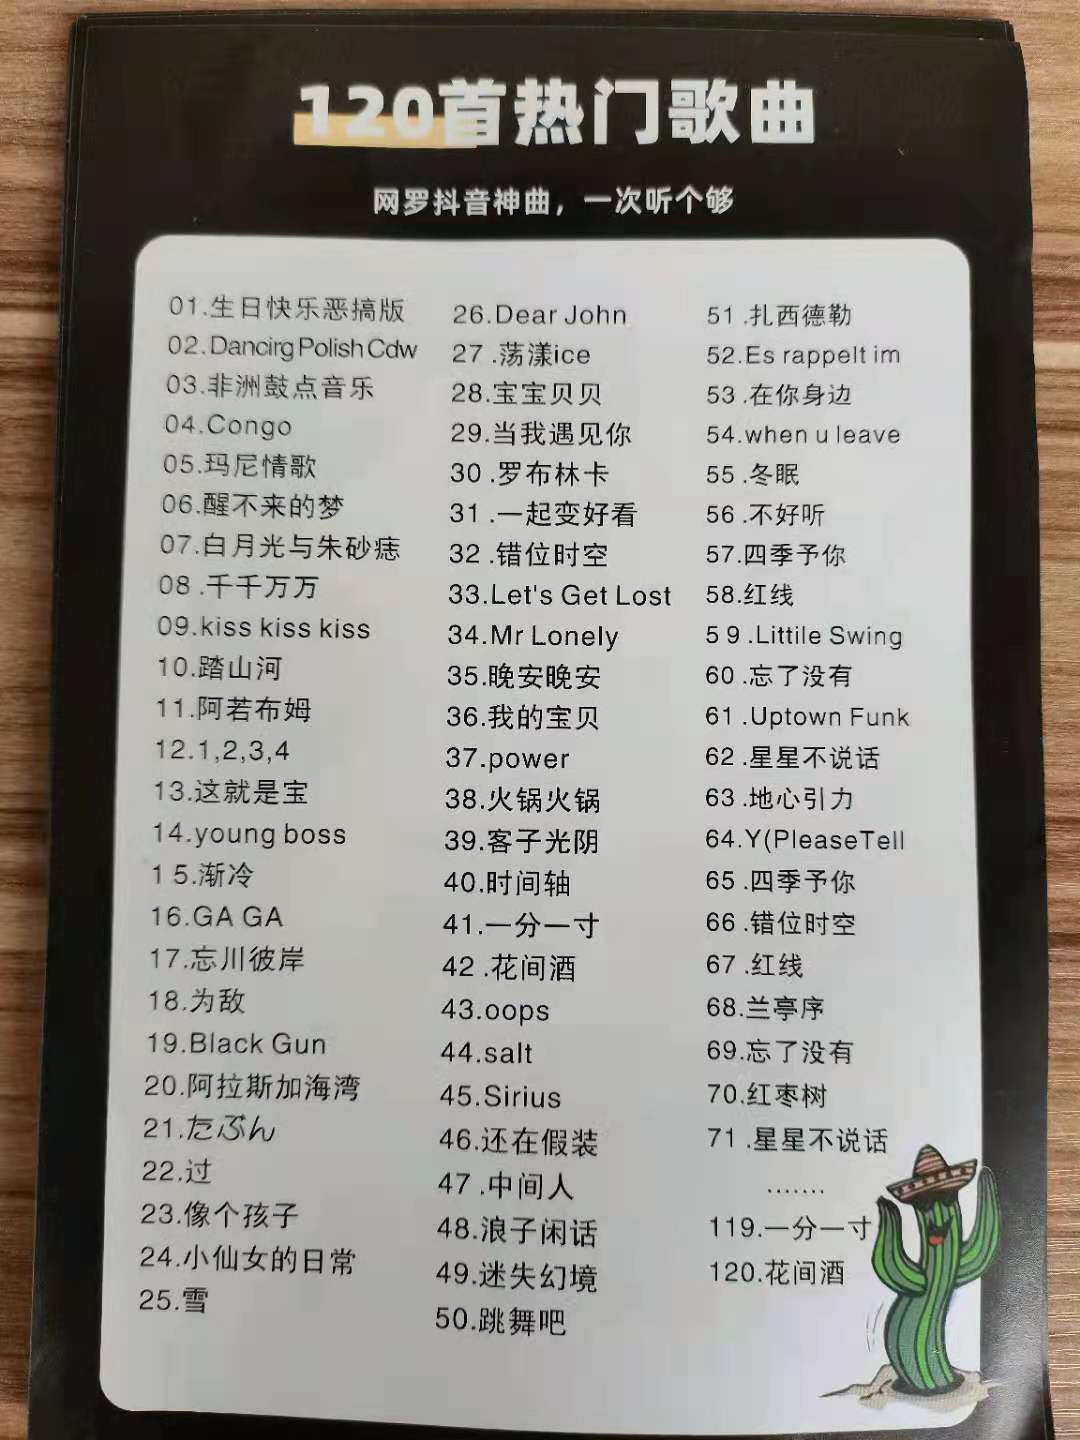 120首热门歌曲
网罗抖音神曲，一次听个够
01.生日快乐恶搞版
02.Dancirg Polish Cdw
03.非洲鼓点音乐
04.Congo
05.玛尼情歌
06.醒不来的梦
07.白月光与朱砂痣
08.千千万万
09.kiss kiss kiss
10.踏山河
11.阿若布姆
12.1,2,3,4
13.这就是宝
14.young boss
15.渐冷
16.GA GA
17.忘川彼岸
18.为敌
19.Black Gun
20.阿拉斯加海湾
21.たぶん
22.过
23.像个孩子
24.小仙女的日常
25.雪
26.Dear John
27.荡漾ice
28.宝宝贝贝
29.当我遇见你
30.罗布林卡
31.一起变好看
32.错位时空
33.Let's Get Lost
34.Mr Lonely
35.晚安晚安
36.我的宝贝
37.power
38.火锅火锅
39.客子光阴
40.时间轴
41.一分一寸
42.花间酒
43.oops
44.salt
45.Sirius
46.还在假装
47.中间人
48.浪子闲话
49.迷失幻境
50.跳舞吧
51.扎西德勒
52.Es rappelt im
53.在你身边
54.when u leave
55.冬眠
56.不好听
57.四季予你
58.红线
59.Littile Swing
60.忘了没有
61.Uptown Funk
62.星星不说话
63.地心引力
64.Y(PleaseTell
65.四季予你
66.错位时空
67.红线
68.兰亭序
69.忘了没有
70.红枣树
71.星星不说话
.......
119.一分一寸
120.花间酒